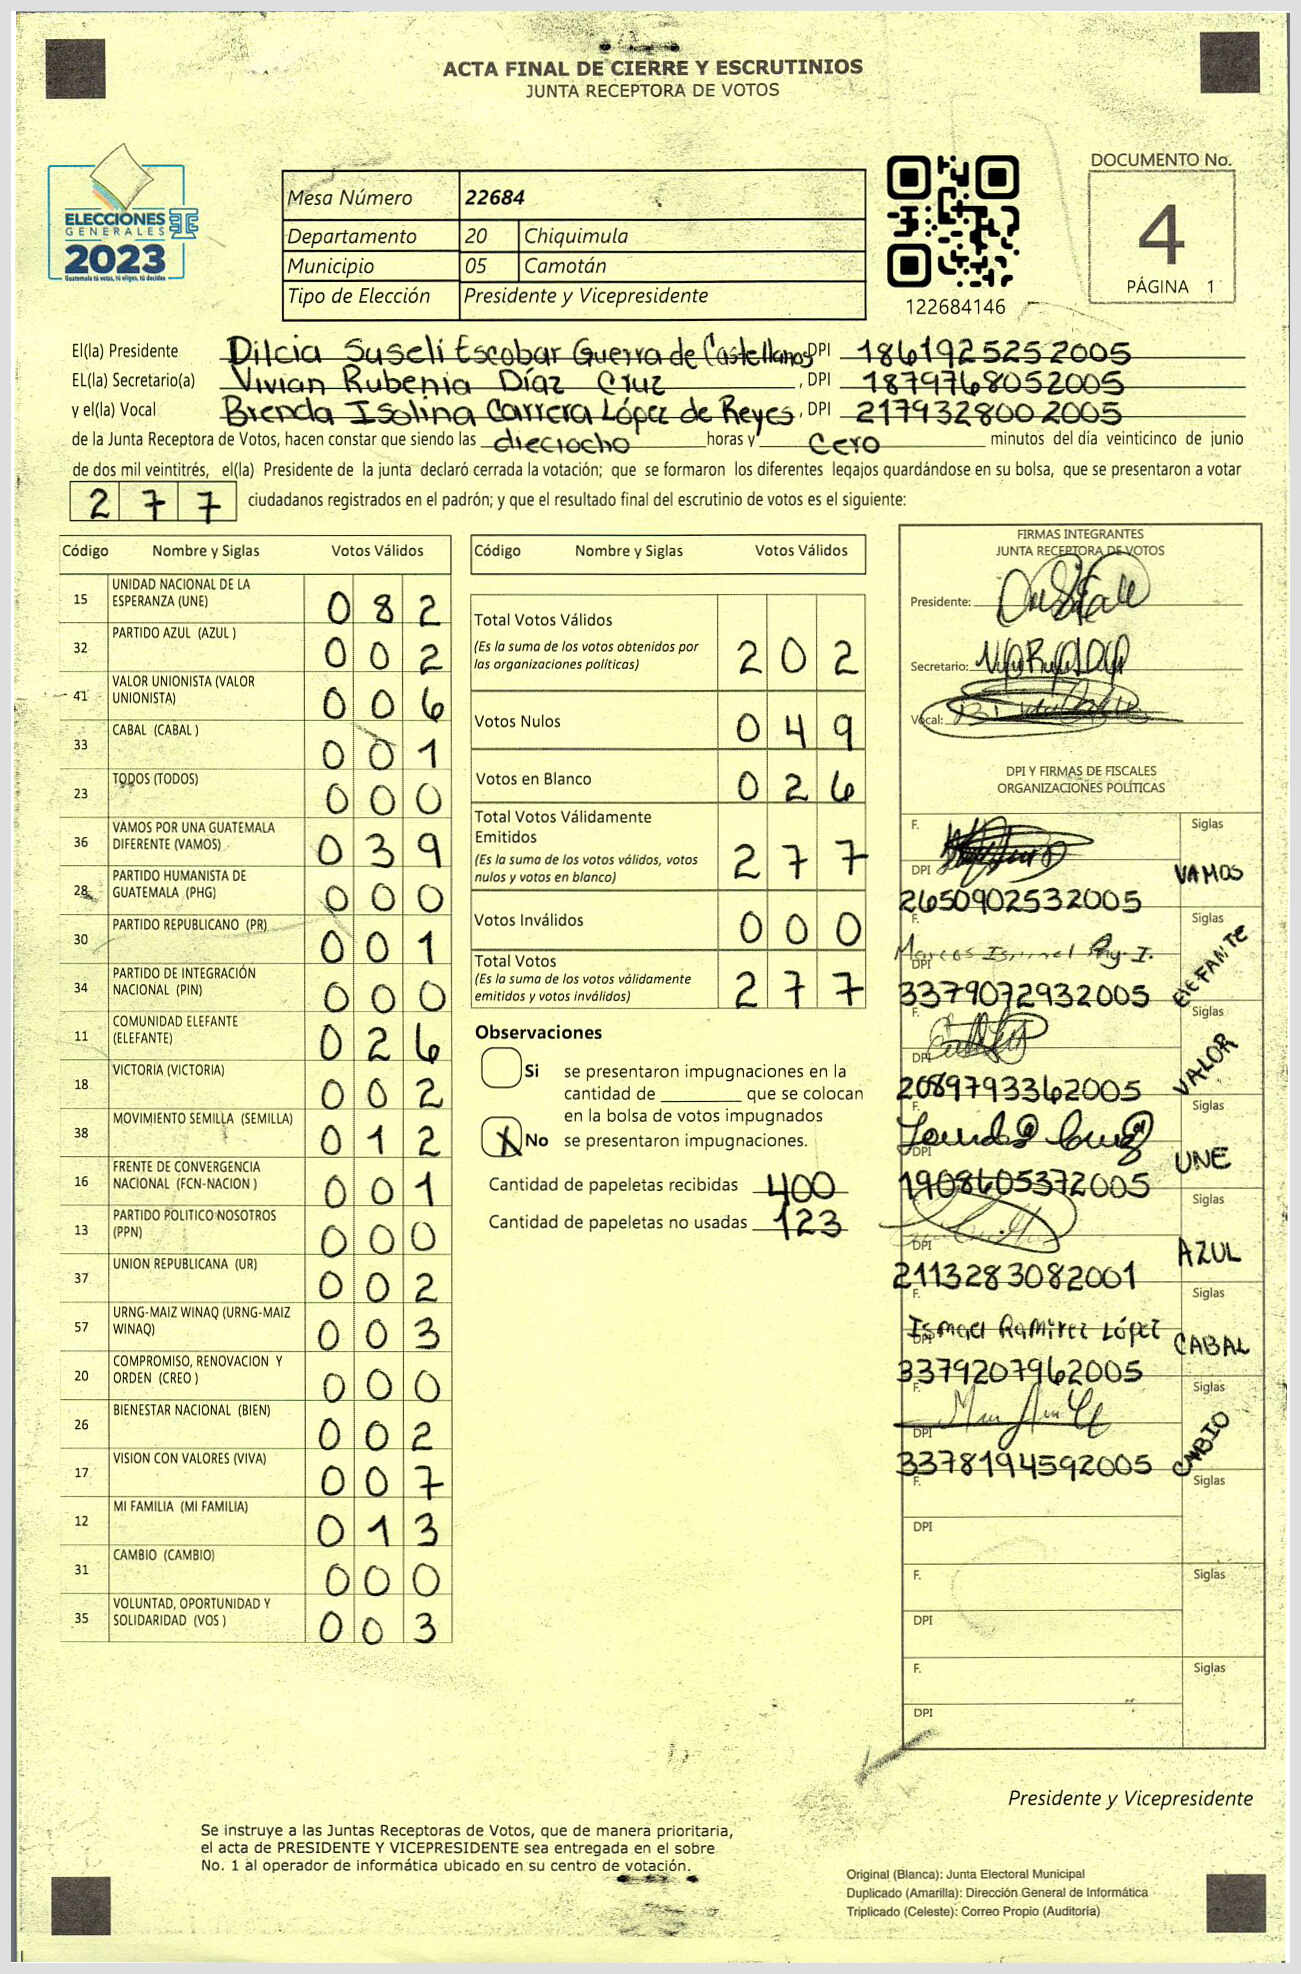 ACTA FINAL DE CIERRE Y ESCRUTINIOS
JUNTA RECEPTORA DE VOTOS
ELECCIONES
GENERALES
2023
Guatemala tú votas, tú eliges, tú decides
Mesa Número 22684
Departamento 20 Chiquimula
Municipio 05 Camotán
Tipo de Elección Presidente y Vicepresidente
122684146
DOCUMENTO No.
4
PÁGINA 1
El(la) Presidente Dilcia Suseli Escobar Guerra de Castellanos DPI 1861925252005
EL(la) Secretario(a) Vivian Rubenia Díaz Cruz, DPI 1879768052005
y el(la) Vocal Brenda Isolina Carrera López de Reyes, DPI 2179328002005
de la Junta Receptora de Votos, hacen constar que siendo las dieciocho horas y cero minutos del día veinticinco de junio
de dos mil veintitrés, el(la) Presidente de la junta declaró cerrada la votación; que se formaron los diferentes legajos quardándose en su bolsa, que se presentaron a votar
277 ciudadanos registrados en el padrón; y que el resultado final del escrutinio de votos es el siguiente:
Código Nombre y Siglas Votos Válidos
15 UNIDAD NACIONAL DE LA ESPERANZA (UNE) 082
32 PARTIDO AZUL (AZUL ) 002
41 VALOR UNIONISTA (VALOR UNIONISTA) 006
33 CABAL (CABAL ) 001
23 TODOS (TODOS) 000
36 VAMOS POR UNA GUATEMALA DIFERENTE (VAMOS) 039
28 PARTIDO HUMANISTA DE GUATEMALA (PHG) 000
30 PARTIDO REPUBLICANO (PR) 001
34 PARTIDO DE INTEGRACIÓN NACIONAL (PIN) 000
11 COMUNIDAD ELEFANTE (ELEFANTE) 026
18 VICTORIA (VICTORIA) 002
38 MOVIMIENTO SEMILLA (SEMILLA) 012
16 FRENTE DE CONVERGENCIA NACIONAL (FCN-NACION ) 001
13 PARTIDO POLITICO NOSOTROS (PPN) 000
37 UNION REPUBLICANA (UR) 002
57 URNG-MAIZ WINAQ (URNG-MAIZ WINAQ) 003
20 COMPROMISO, RENOVACION Y ORDEN (CREO ) 000
26 BIENESTAR NACIONAL (BIEN) 002
17 VISION CON VALORES (VIVA) 007
12 MI FAMILIA (MI FAMILIA) 013
31 CAMBIO (CAMBIO) 000
35 VOLUNTAD, OPORTUNIDAD Y SOLIDARIDAD (VOS ) 003
Código Nombre y Siglas Votos Válidos
Total Votos Válidos 202
(Es la suma de los votos obtenidos por
las organizaciones políticas)
Votos Nulos 049
Votos en Blanco 026
Total Votos Válidamente
Emitidos 277
(Es la suma de los votos válidos, votos
nulos y votos en blanco)
Votos Inválidos 000
Total Votos 277
(Es la suma de los votos válidamente
emitidos y votos inválidos)
Observaciones
Si se presentaron impugnaciones en la
cantidad de ________ que se colocan
en la bolsa de votos impugnados
X No se presentaron impugnaciones.
Cantidad de papeletas recibidas 400
Cantidad de papeletas no usadas 123
FIRMAS INTEGRANTES
JUNTA RECEPTORA DE VOTOS
Presidente:
Secretario:
Vocal:
DPI Y FIRMAS DE FISCALES
ORGANIZACIONES POLÍTICAS
F. Siglas
DPI 2650902532005 VAMOS
F. Marcos Siglas
DPI 3379072932005 ELEFANTE
F. Siglas
DPI 2089793362005 VALOR
F. Siglas
DPI 1908605372005 UNE
F. Siglas
DPI 2113283082001 AZUL
F. Ismael Ramirez López Siglas
DPI 3379207962005 CABAL
F. Siglas
DPI 3378194592005 CMBIO
F. Siglas
DPI
F. Siglas
DPI
F. Siglas
DPI
Presidente y Vicepresidente
Se instruye a las Juntas Receptoras de Votos, que de manera prioritaria,
el acta de PRESIDENTE Y VICEPRESIDENTE sea entregada en el sobre
No. 1 al operador de informática ubicado en su centro de votación.
Original (Blanca): Junta Electoral Municipal
Duplicado (Amarilla): Dirección General de Informática
Triplicado (Celeste): Correo Propio (Auditoria)